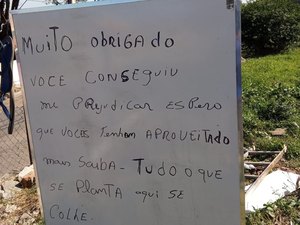 MUITO obRIGAdo
VOCE CONSEGUIU
me PRejudicAR ESPERO
que VOCES TenhAm APROVEITADO
mais SAibA - TUdo O que
se PlANTA Aqui SE
Colhe.